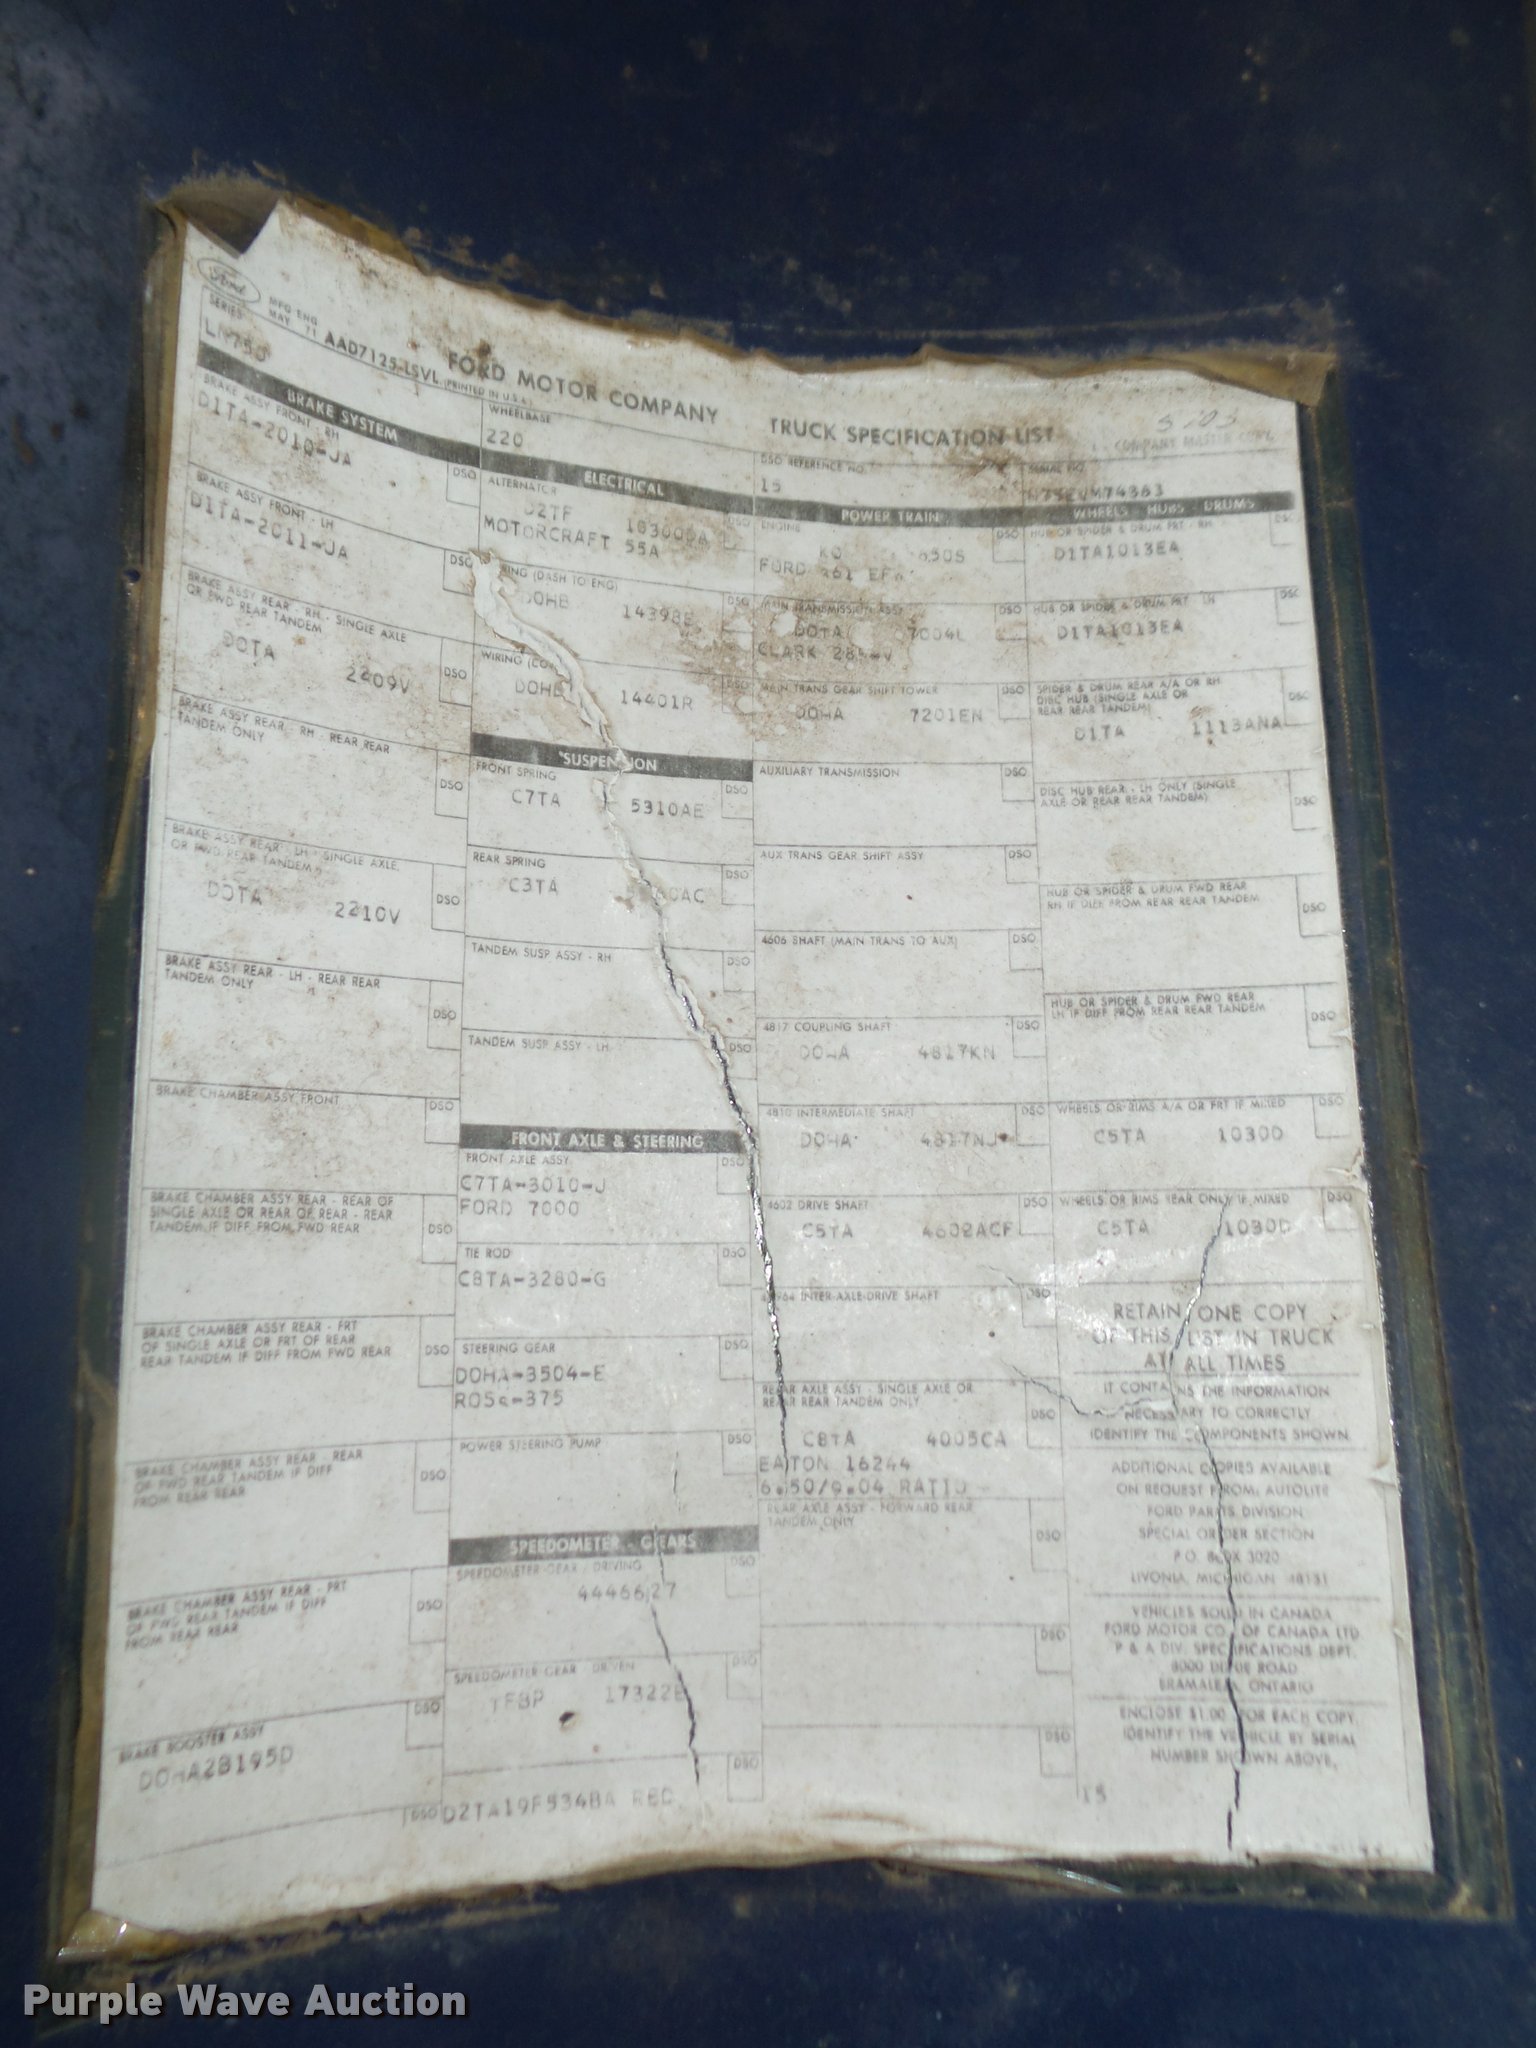 Ford
MFG ENG
MAY 71 AAD7125-LSVL (PRINTED IN U.S.A.)
FORD MOTOR COMPANY TRUCK SPECIFICATION LIST
COMPANY MASTER COPY
SERIES
WHEELBASE
220
DSO REFERENCE NO.
15
SERIAL NO.
BRAKE SYSTEM
BRAKE ASSY FRONT - RH
D1TA-2010-JA
DSO
BRAKE ASSY FRONT - LH
D1TA-2011-JA
DSO
BRAKE ASSY REAR - RH - SINGLE AXLE
OR FWD REAR TANDEM
DOTA 2209V
DSO
BRAKE ASSY REAR - RH - REAR REAR
TANDEM ONLY
DSO
BRAKE ASSY REAR - LH - SINGLE AXLE,
OR FWD REAR TANDEM
DOTA 2210V
DSO
BRAKE ASSY REAR - LH - REAR REAR
TANDEM ONLY
DSO
BRAKE CHAMBER ASSY FRONT
DSO
BRAKE CHAMBER ASSY REAR - REAR OF
SINGLE AXLE OR REAR OF REAR - REAR
TANDEM IF DIFF FROM FWD REAR
DSO
BRAKE CHAMBER ASSY REAR - FRT
OF SINGLE AXLE OR FRT OF REAR
REAR TANDEM IF DIFF FROM FWD REAR
DSO
BRAKE CHAMBER ASSY REAR - REAR
OF FWD REAR TANDEM IF DIFF
FROM REAR REAR
DSO
BRAKE CHAMBER ASSY REAR - FRT
OF FWD REAR TANDEM IF DIFF
FROM REAR REAR
DSO
BRAKE BOOSTER ASSY
DOHA2B195D
DSO
DSO
ELECTRICAL
ALTERNATOR
D2TF
MOTORCRAFT 55A
DSO
WIRING (DASH TO ENG)
DOHB 14398E
DSO
WIRING
14401R
DSO
SUSPENSION
FRONT SPRING
C7TA 5310AE
DSO
REAR SPRING
C3TA
DSO
TANDEM SUSP ASSY - RH
DSO
TANDEM SUSP ASSY - LH
DSO
FRONT AXLE & STEERING
FRONT AXLE ASSY.
C7TA-3010-J
FORD 7000
DSO
TIE ROD
C8TA-3280-G
DSO
STEERING GEAR
DOHA-3504-E
DSO
POWER STEERING PUMP
DSO
SPEEDOMETER - GEARS
SPEEDOMETER GEAR - DRIVING
44466127
DSO
SPEEDOMETER GEAR - DRIVEN
17322E
DSO
DSO
D2TA19F534BA
POWER TRAIN
ENGINE
FORD
DSO
MAIN TRANSMISSION ASSY
DOTA 7004L
CLARK
DSO
MAIN TRANS GEAR SHIFT TOWER
DOHA 7201EN
DSO
AUXILIARY TRANSMISSION
DSO
AUX TRANS GEAR SHIFT ASSY
DSO
4606 SHAFT (MAIN TRANS TO AUX)
DSO
4817 COUPLING SHAFT
DOHA 4817KN
DSO
4810 INTERMEDIATE SHAFT
DOHA 4817NJ
DSO
4602 DRIVE SHAFT
C5TA 4602ACF
DSO
INTER-AXLE-DRIVE SHAFT
DSO
REAR AXLE ASSY - SINGLE AXLE OR
REAR REAR TANDEM ONLY
C8TA 4005CA
EATON 16244
6.50/9.04 RATIO
DSO
REAR AXLE ASSY - FORWARD REAR
TANDEM ONLY
DSO
DSO
DSO
WHEELS - HUBS - DRUMS
HUB OR SPIDER & DRUM FRT - RH
D1TA1013EA
DSO
HUB OR SPIDER & DRUM FRT - LH
D1TA1013EA
DSO
SPIDER & DRUM REAR A/A OR RH
DISC HUB (SINGLE AXLE OR
REAR REAR TANDEM)
D1TA 1113ANA
DSO
DISC HUB REAR - LH ONLY (SINGLE
AXLE OR REAR REAR TANDEM)
DSO
HUB OR SPIDER & DRUM FWD REAR
RH IF DIFF FROM REAR REAR TANDEM
DSO
HUB OR SPIDER & DRUM FWD REAR
LH IF DIFF FROM REAR REAR TANDEM
DSO
WHEELS OR RIMS A/A OR FRT IF MIXED
C5TA 1030D
DSO
WHEELS OR RIMS REAR ONLY IF MIXED
C5TA 1030D
DSO
RETAIN ONE COPY
OF THIS LIST IN TRUCK
AT ALL TIMES
IT CONTAINS THE INFORMATION
NECESSARY TO CORRECTLY
IDENTIFY THE COMPONENTS SHOWN
ADDITIONAL COPIES AVAILABLE
ON REQUEST FROM: AUTOLITE
FORD PARTS DIVISION
SPECIAL ORDER SECTION
P.O. BOX 3020
LIVONIA, MICHIGAN 48151
VEHICLES SOLD IN CANADA
FORD MOTOR CO. OF CANADA LTD
P & A DIV. SPECIFICATIONS DEPT.
8000 DIXIE ROAD
BRAMALEA, ONTARIO
ENCLOSE $1.00 FOR EACH COPY.
IDENTIFY THE VEHICLE BY SERIAL
NUMBER SHOWN ABOVE.
15
Purple Wave Auction